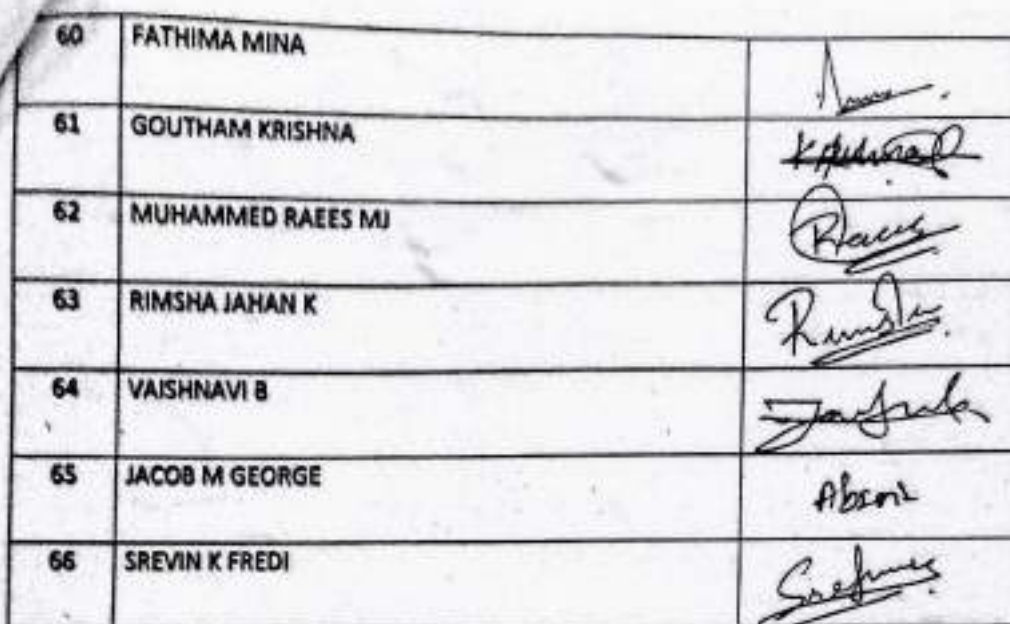 60 FATHIMA MINA
61 GOUTHAM KRISHNA
62 MUHAMMED RAEES MJ Raees
63 RIMSHA JAHAN K Rimsha
64 VAISHNAVI B
65 JACOB M GEORGE Absent
66 SREVIN K FREDI